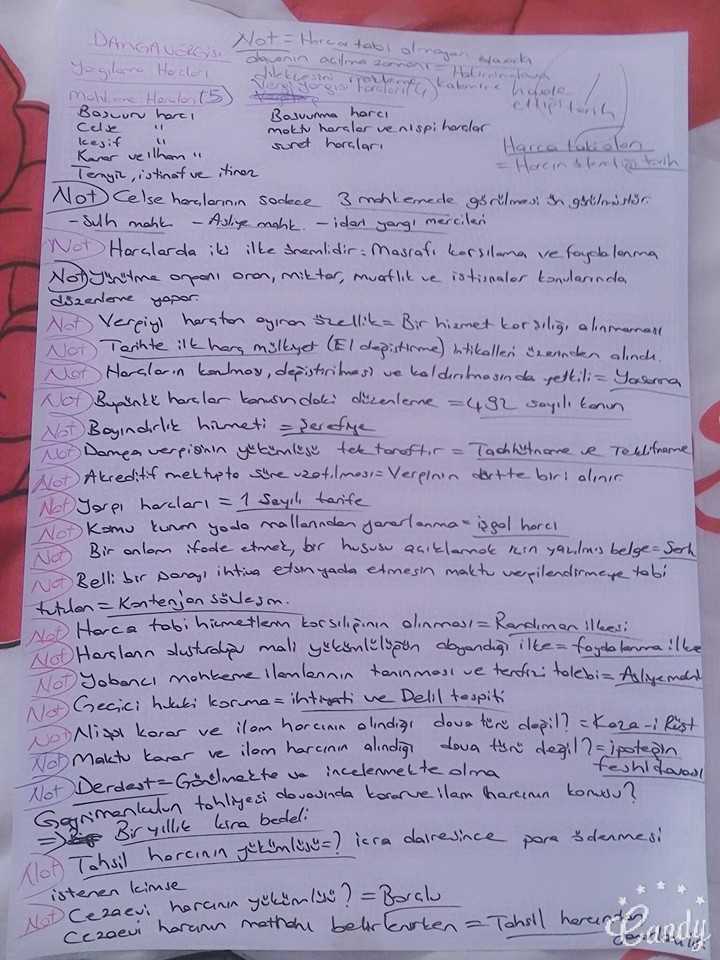 DAMGA VERGİSİ
Not = Harca tabi olmayan evrakı
davanın açılma zamanı = Hakimin havale
dilekçesini
ettiği tarih
Yargılama Harcları
Vergi yargısı harcları (4)
Mahkeme Harcları (5)
Başvuru harcı
Başvurma harcı
Celse "
maktu harclar ve nispi harclar
Keşif "
suret harcları
Harca tabi olan
= Harcın ödendiği tarih
Karar ve ilham "
Temyiz, istinaf ve itiraz
Not) Celse harclarının sadece 3 mahkemede görülmesi ön görülmüştür.
- Sulh mahk - Asliye mahk. - idari yargı mercileri
Not Harclarda iki ilke önemlidir: Masrafı karşılama ve faydalanma
Not) Yürütme organı oran, miktar, muaflık ve istisnalar konularında
düzenleme yapar.
Not) Vergiyi harçtan ayıran özellik = Bir hizmet karşılığı alınmaması
Not) Tarihte ilk harç mülkiyet (El değiştirme) intikalleri üzerinden alındı.
Not) Harçların konulması, değiştirilmesi ve kaldırılmasında yetkili = Yasama
Not) Bugünkü harclar konusundaki düzenleme = 492 sayılı kanun
Not) Bayındırlık hizmeti = Şerefiye
Not) Damga vergisinin yükümlüsü tek taraftır = Taahhütname ve Teklifname
Not) Akreditif mektupta süre uzatılması = Verginin dörtte biri alınır
Not) Yargı harcları = 1 Sayılı tarife
Not) Kamu kurum yada mallarından yararlanma = işgal harcı
Not) Bir anlam ifade etmek, bir hususu açıklamak için yazılmış belge = Şerh
Not) Belli bir parayı ihtiva etsin yada etmesin maktu vergilendirmeye tabi
tutulan = Kontenjan sözleşm.
Not) Harca tabi hizmetlerin karşılığının alınması = Randıman ilkesi
Not) Harçların oluşturduğu mali yükümlülüğün dayandığı ilke = faydalanma ilke
Not) Yabancı mahkeme ilamlarının tanınması ve tenfizi talebi = Asliye mahk
Not) Geçici hukuki koruma = ihtiyati ve Delil tespiti
Not) Nispi karar ve ilam harcının alındığı dava türü değil? = Kaza-i Rüşt
Not) Maktu karar ve ilam harcının alındığı dava türü değil? = ipoteğin
feshi davası
Not) Derdest = Görülmekte ve incelenmekte olma
Gayrimenkulün tahliyesi davasında karar ve ilam harcının konusu?
=> Bir yıllık kira bedeli
Not) Tahsil harcının yükümlüsü =? icra dairesince para ödenmesi
istenen kimse
Not) Cezaevi harcının yükümlüsü? = Borçlu
Cezaevi harcının matrahı belirlenirken = Tahsil harcından
Candy